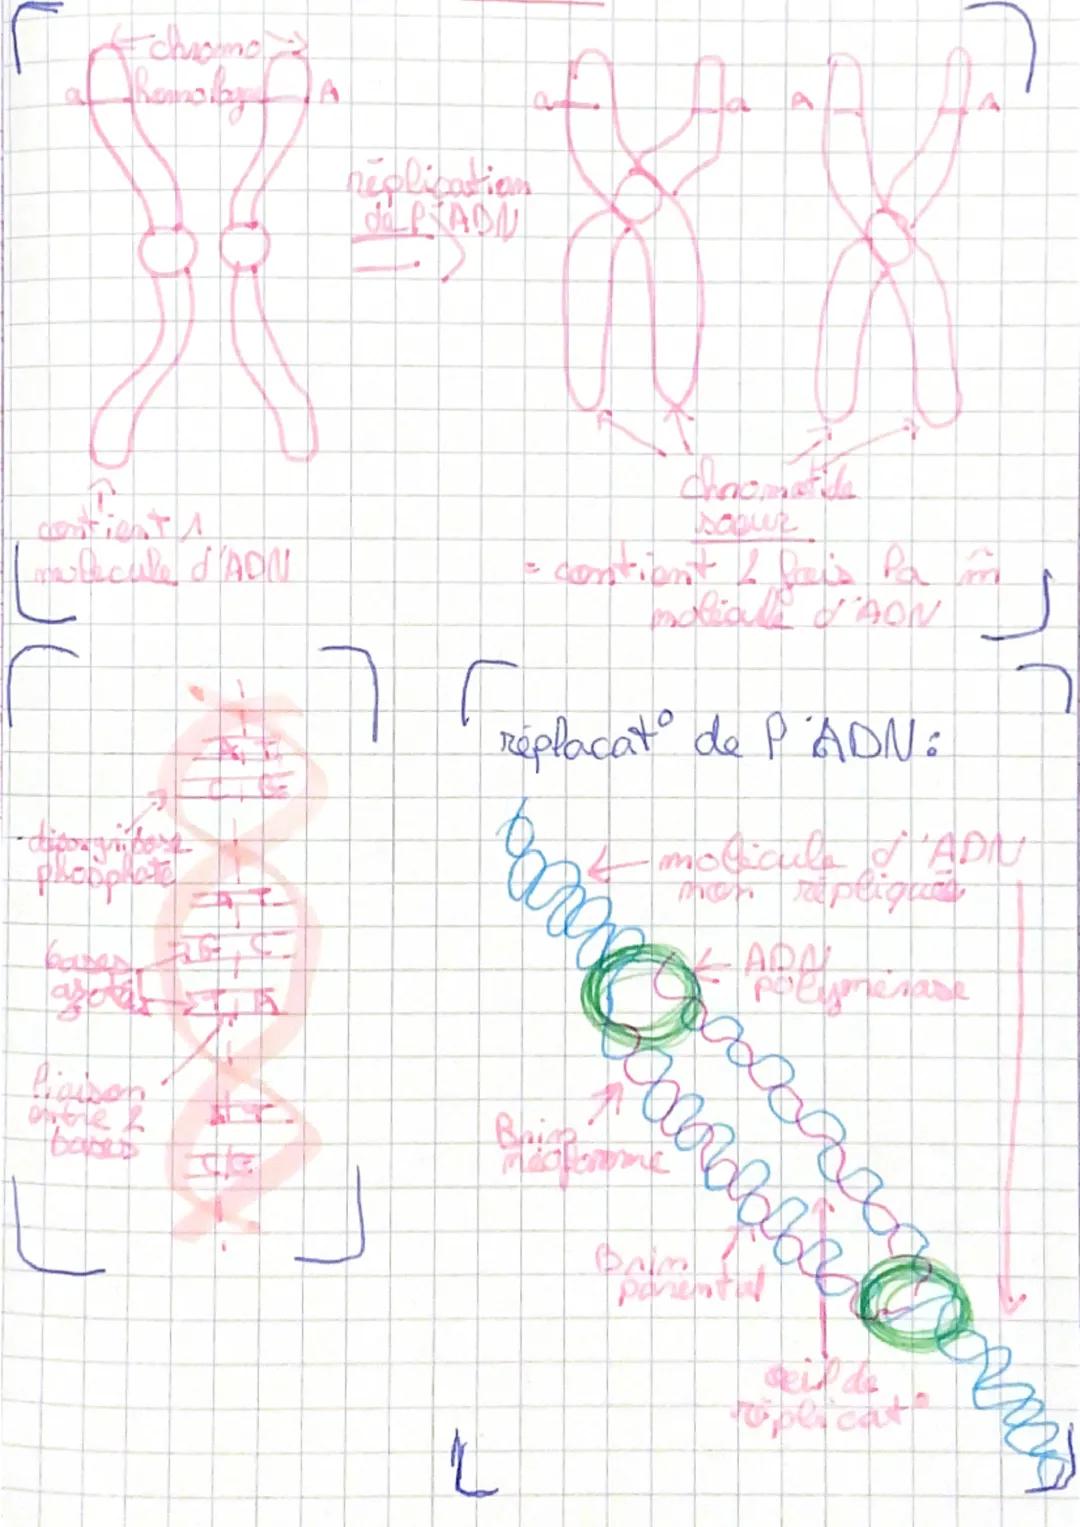 chromo
homologe
a
A
a
a
A
A
réplication
de l'ADN
contient 1
molécule d'ADN
chromatide
soeur
= contient 2 fois la m̂
molécule d'ADN
réplacat° de l'ADN:
A T
C G
phosphate
A T
G C
bases
azotés
T A
liaison
entre 2
bases
C G
molécule d'ADN
non répliquée
ADN
polymérase
Brin
néoformé
Brin
parental
oeil de
réplicat°